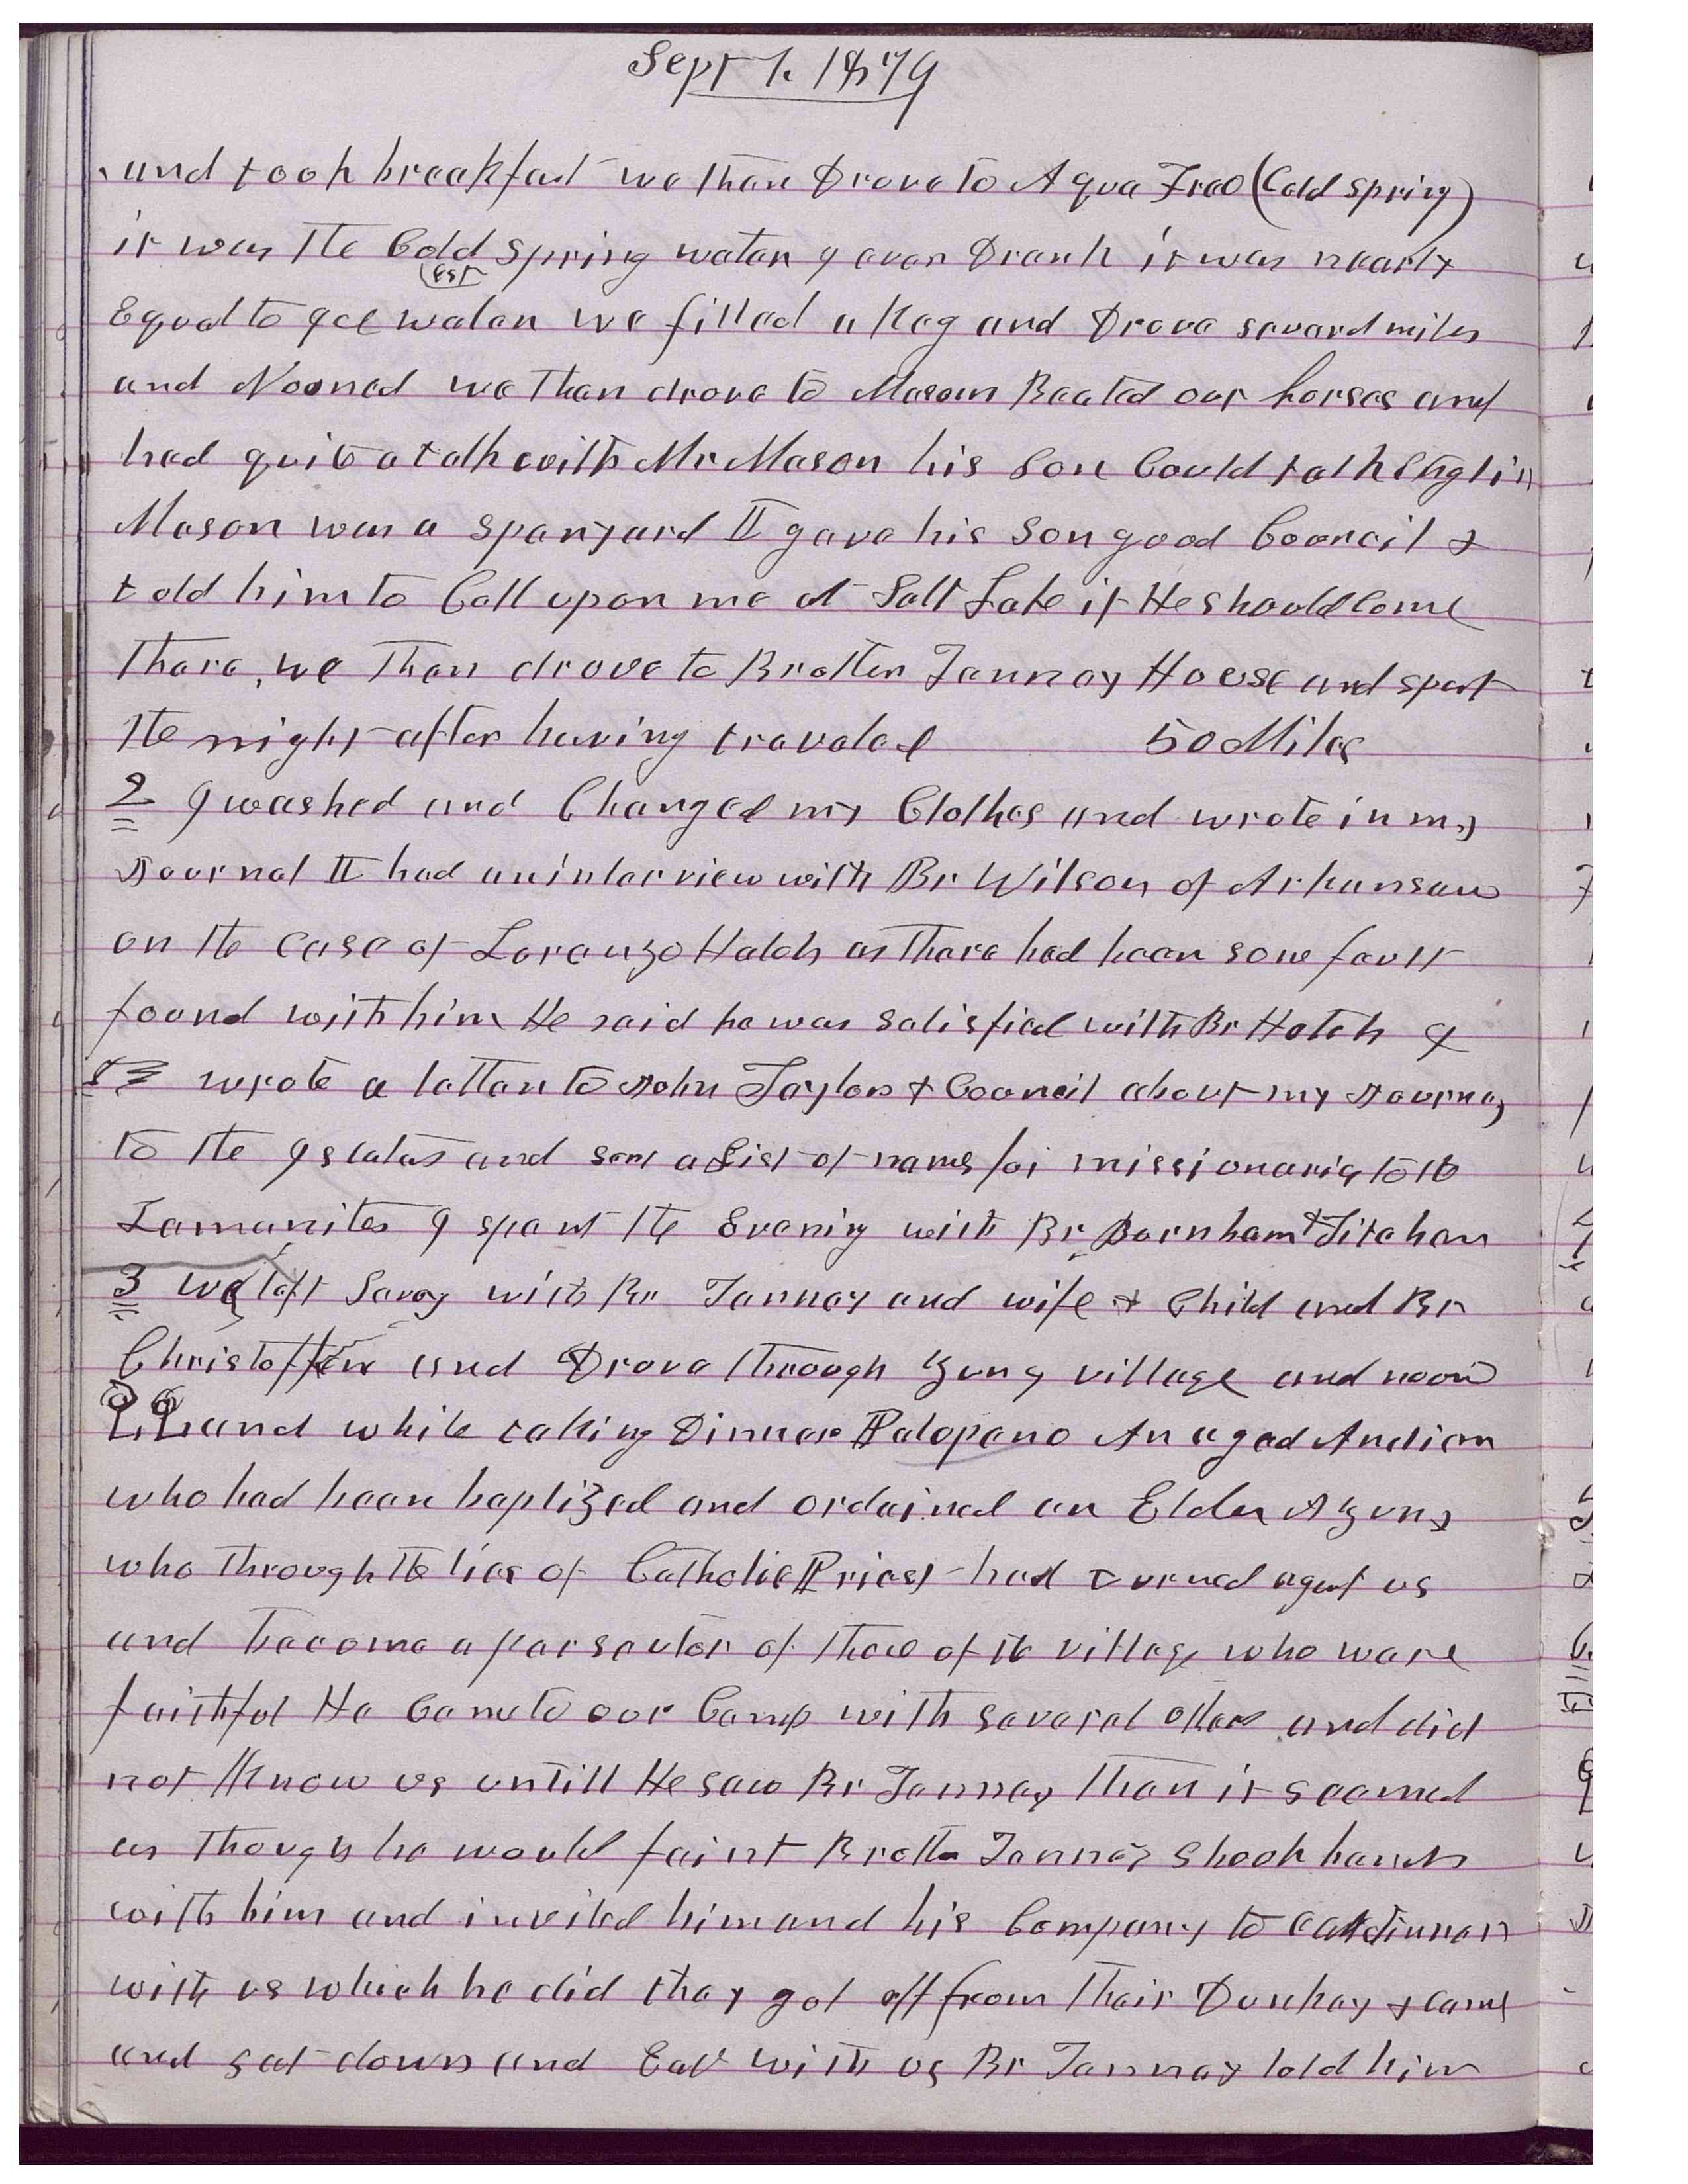 Sept 1. 1879
and took breakfast we then Drove to Aqua Freo (Cold spring)
it was the Cold spring water I ever Drank it was nearly
est
Equal to Ice water we filled a Keg and Drove several miles
and Nooned we then drove to Mason Baated our horses and
had quite a talk with Mr Mason his Son Could talk English
Mason was a spanyard I gave his Son good Council &
told him to Call upon me at Salt Lake if He should Come
there, we then drove to Brother Tenney House and spent
the night after having traveled 50 Miles
2 I washed and Changed my Clothes and wrote in my
Journal I had an interview with Br Wilson of Arkansaw
on the case of Lorenzo Hatch as there had been some fault
found with him He said he was satisfied with Br Hatch I
wrote a letter to John Taylor & Council about my Journey
to the Isletas and sent a List of names for missionaries to the
Lamanites I spent the Evening with Br Burnham & Titahan
3 we left Savoy with Br Tenney and wife & Child and Br
Christoffer and Drove through Zuny village and noond
and while taking Dinner Palopano An aged Indian
who had been baptized and ordained an Elder A Zuny
who through the lies of Catholic Priest had turned agest us
and become a persecutor of those of the village who ware
faithful He Came to our Camp with several others and did
not Know us untill He saw Br Tenney then it seemed
as though he would faint Brother Tenney shook hands
with him and invited him and his Company to eat dinner
with us which he did they got off from their Donkey & came
and sat down and Eat with us Br Tenney told him